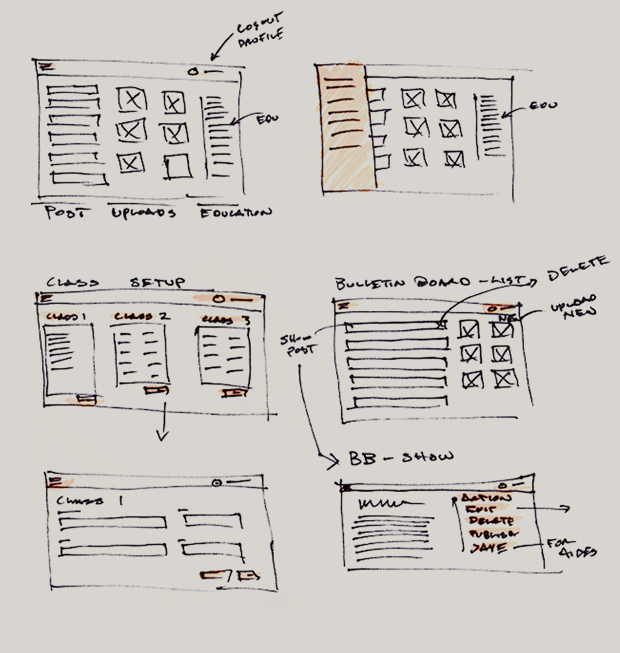 LOGOUT
PROFILE
EDU
POST UPLOADS EDUCATION
EDU
CLASS SETUP
CLASS 1 CLASS 2 CLASS 3
BULLETIN BOARD - LIST
DELETE
UPLOAD
NEW
NEW
SHOW
POST
CLASS 1
BB - SHOW
ACTION
EDIT
DELETE
PUBLISH
SAVE
FOR
AIDES